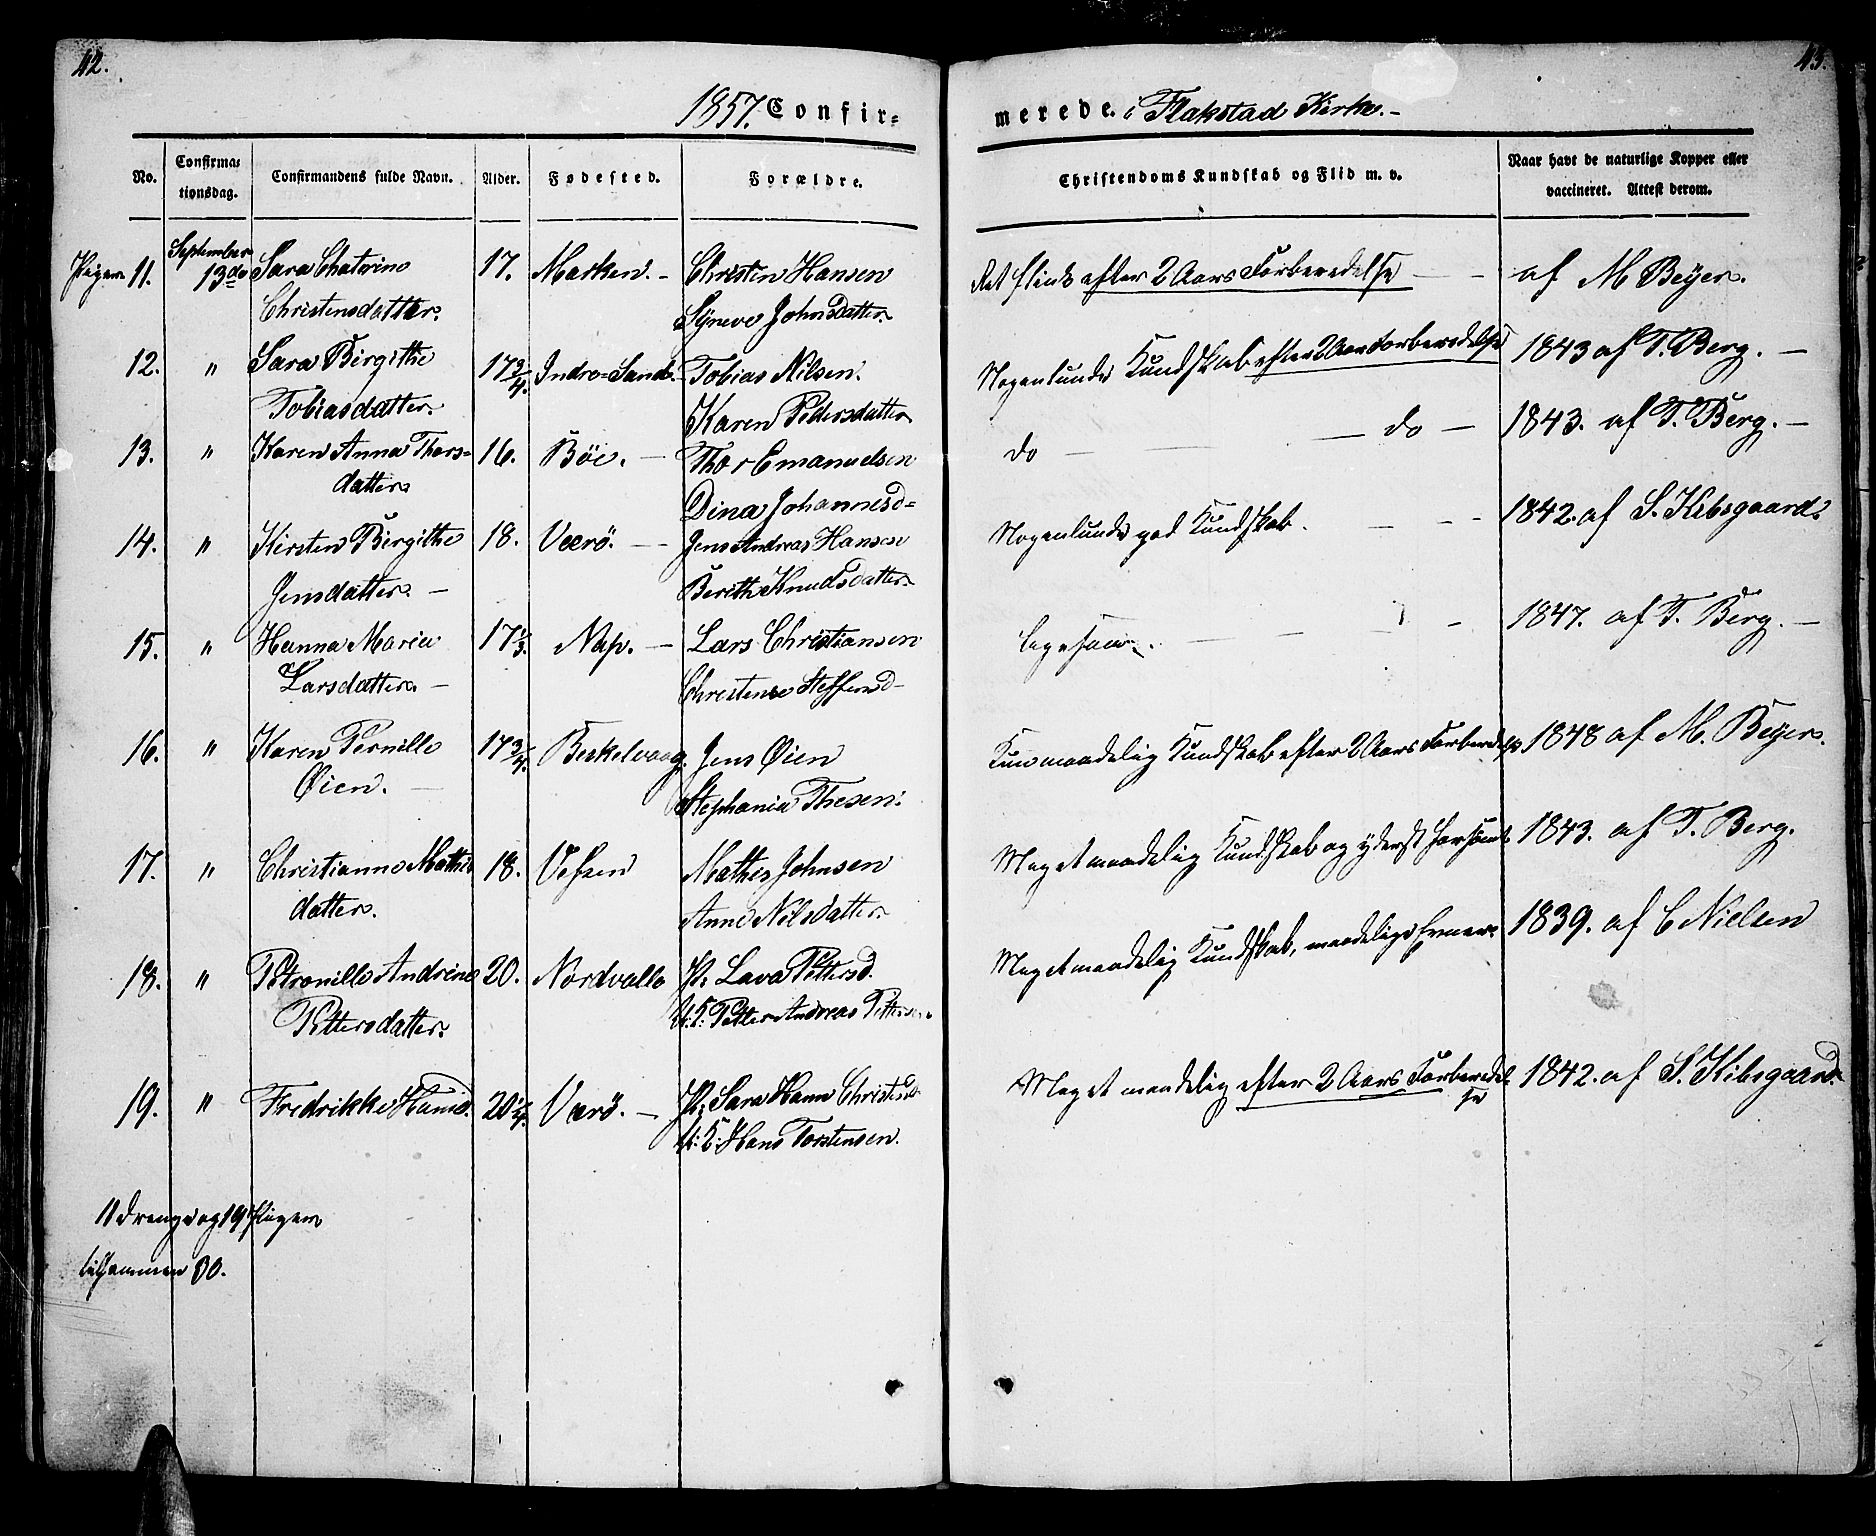 42.
43.
1857. Confir=
merede. i Flakstad Kirke.-
No.
Confirma=
tionsdag.
Confirmandens fulde Navn.
Alder.
Fødested.
Forældre.
Christendoms Kundskab og Flid m. v.
Naar havt de naturlige Kopper eller
vaccineret. Attest derom.
Piger 11. September 13de Sara Chatrine 17. Marken. - Christen Hansen efter 2 Aars Forberedelse - - af M Beÿer.
Christensdatter. Sÿneve Johnsdatter.
12. " Sara Birgithe 17 3/4. Indre=Sand. Tobias Nilsen. Nogenlunde Kundskab efter 2 Aars Forberedelse 1843 af T. Berg. -
Tobiasdatter. Karen Pedersdatter
13. " Karen Anna Thors= 16. Böe. - Thor Emanuelsen do - - do - 1843. af T. Berg. -
datter Dina Johannesd=
14. " Kirsten Birgithe 18. Værö. - Jens Andreas Hansen Nogenlunde god Kundskab. - - - 1842. af S. Kibsgaard.
Jensdatter. - Berith Knudsdatter.
15. " Hanna Maria 17 1/3. Nap. - Lars Christiansen ligesaa. - - - 1847. af T. Berg. -
Larsdatter. - Christense Steffensd-
16. " Karen Pernille 17 3/4. Beskelvaag. Jens Øien Kun maadelig Kundskab efter 2 Aars Forberedelse 1848 af M. Beÿer.
Øien. - Stephania Thesen.
17. " Christianne Mathis 18. Vefsen Mathis Johnsen Meget maadelig Kundskab og ÿderst forsömt 1843. af T. Berg.
datter. Anne Nilsdatter.
18. " Petronille Andrine 20. Nordvalle P: Lava Pettersd. Meget maadelig Kundskab, maadelige Evner. 1839. af C Nielsen
Pettersdatter. U: K: Petter Andreas Pettersen.
19. " Fredrikke Hansd. 20 1/4. Værö. - P: Sara Hann Christensd. Meget maadelig efter 2 Aars Forberedel 1842. af S. Kibsgaard.
se
U: K: Hans Torstensen.
11 drenge og 19 Piger
tilsammen 30.